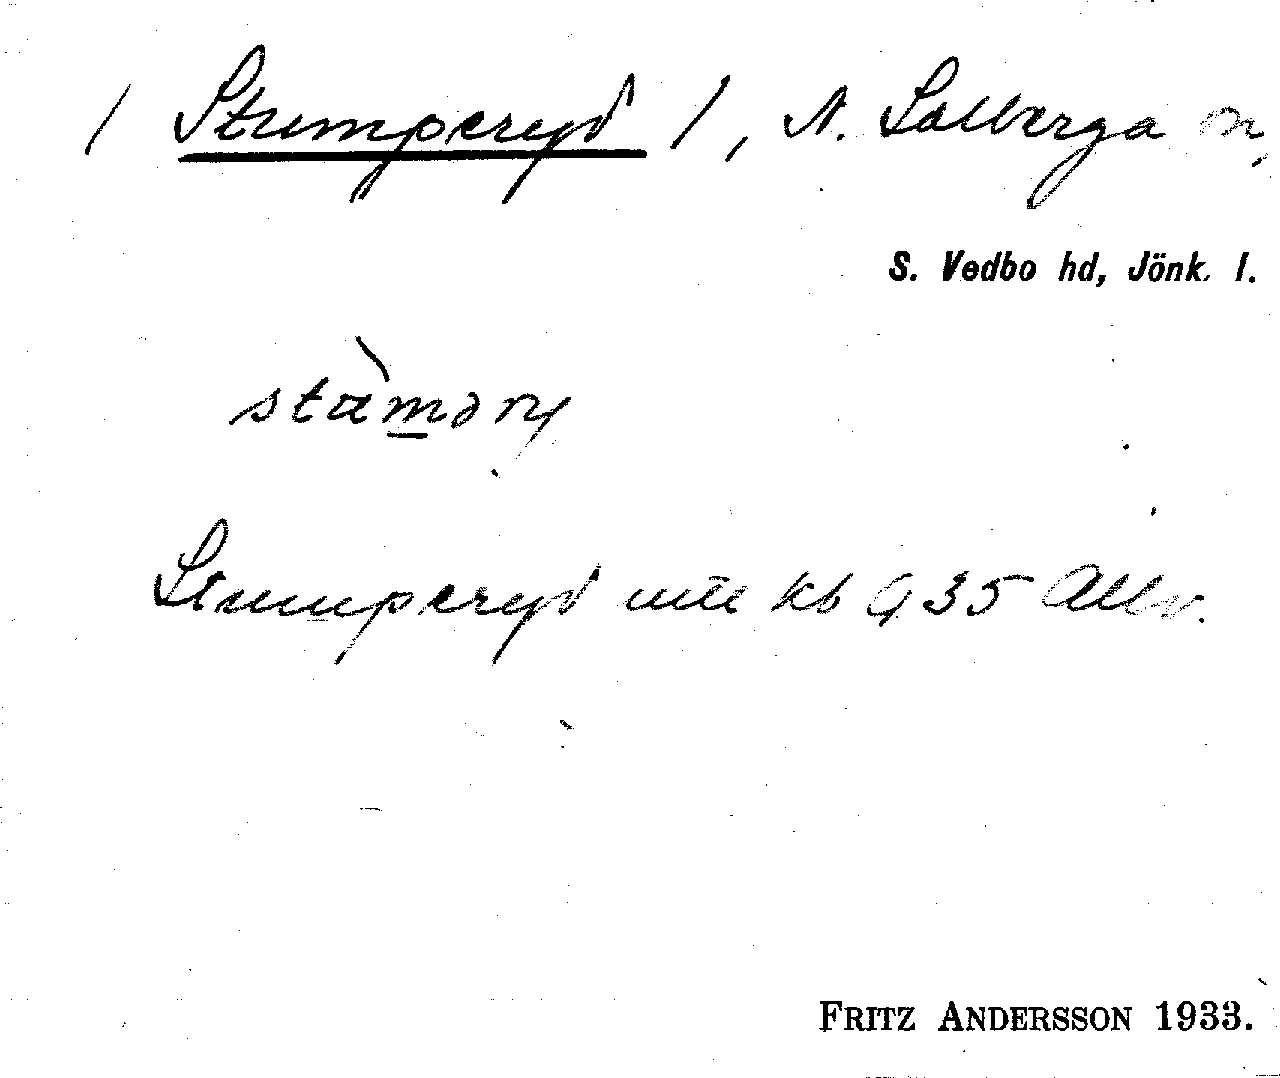 / Stumperyd /, N. Solberga sn,
S. Vedbo hd, Jönk. l.
stàməry
Stumperyd kb G 35 Allm.
FRITZ ANDERSSON 1933.